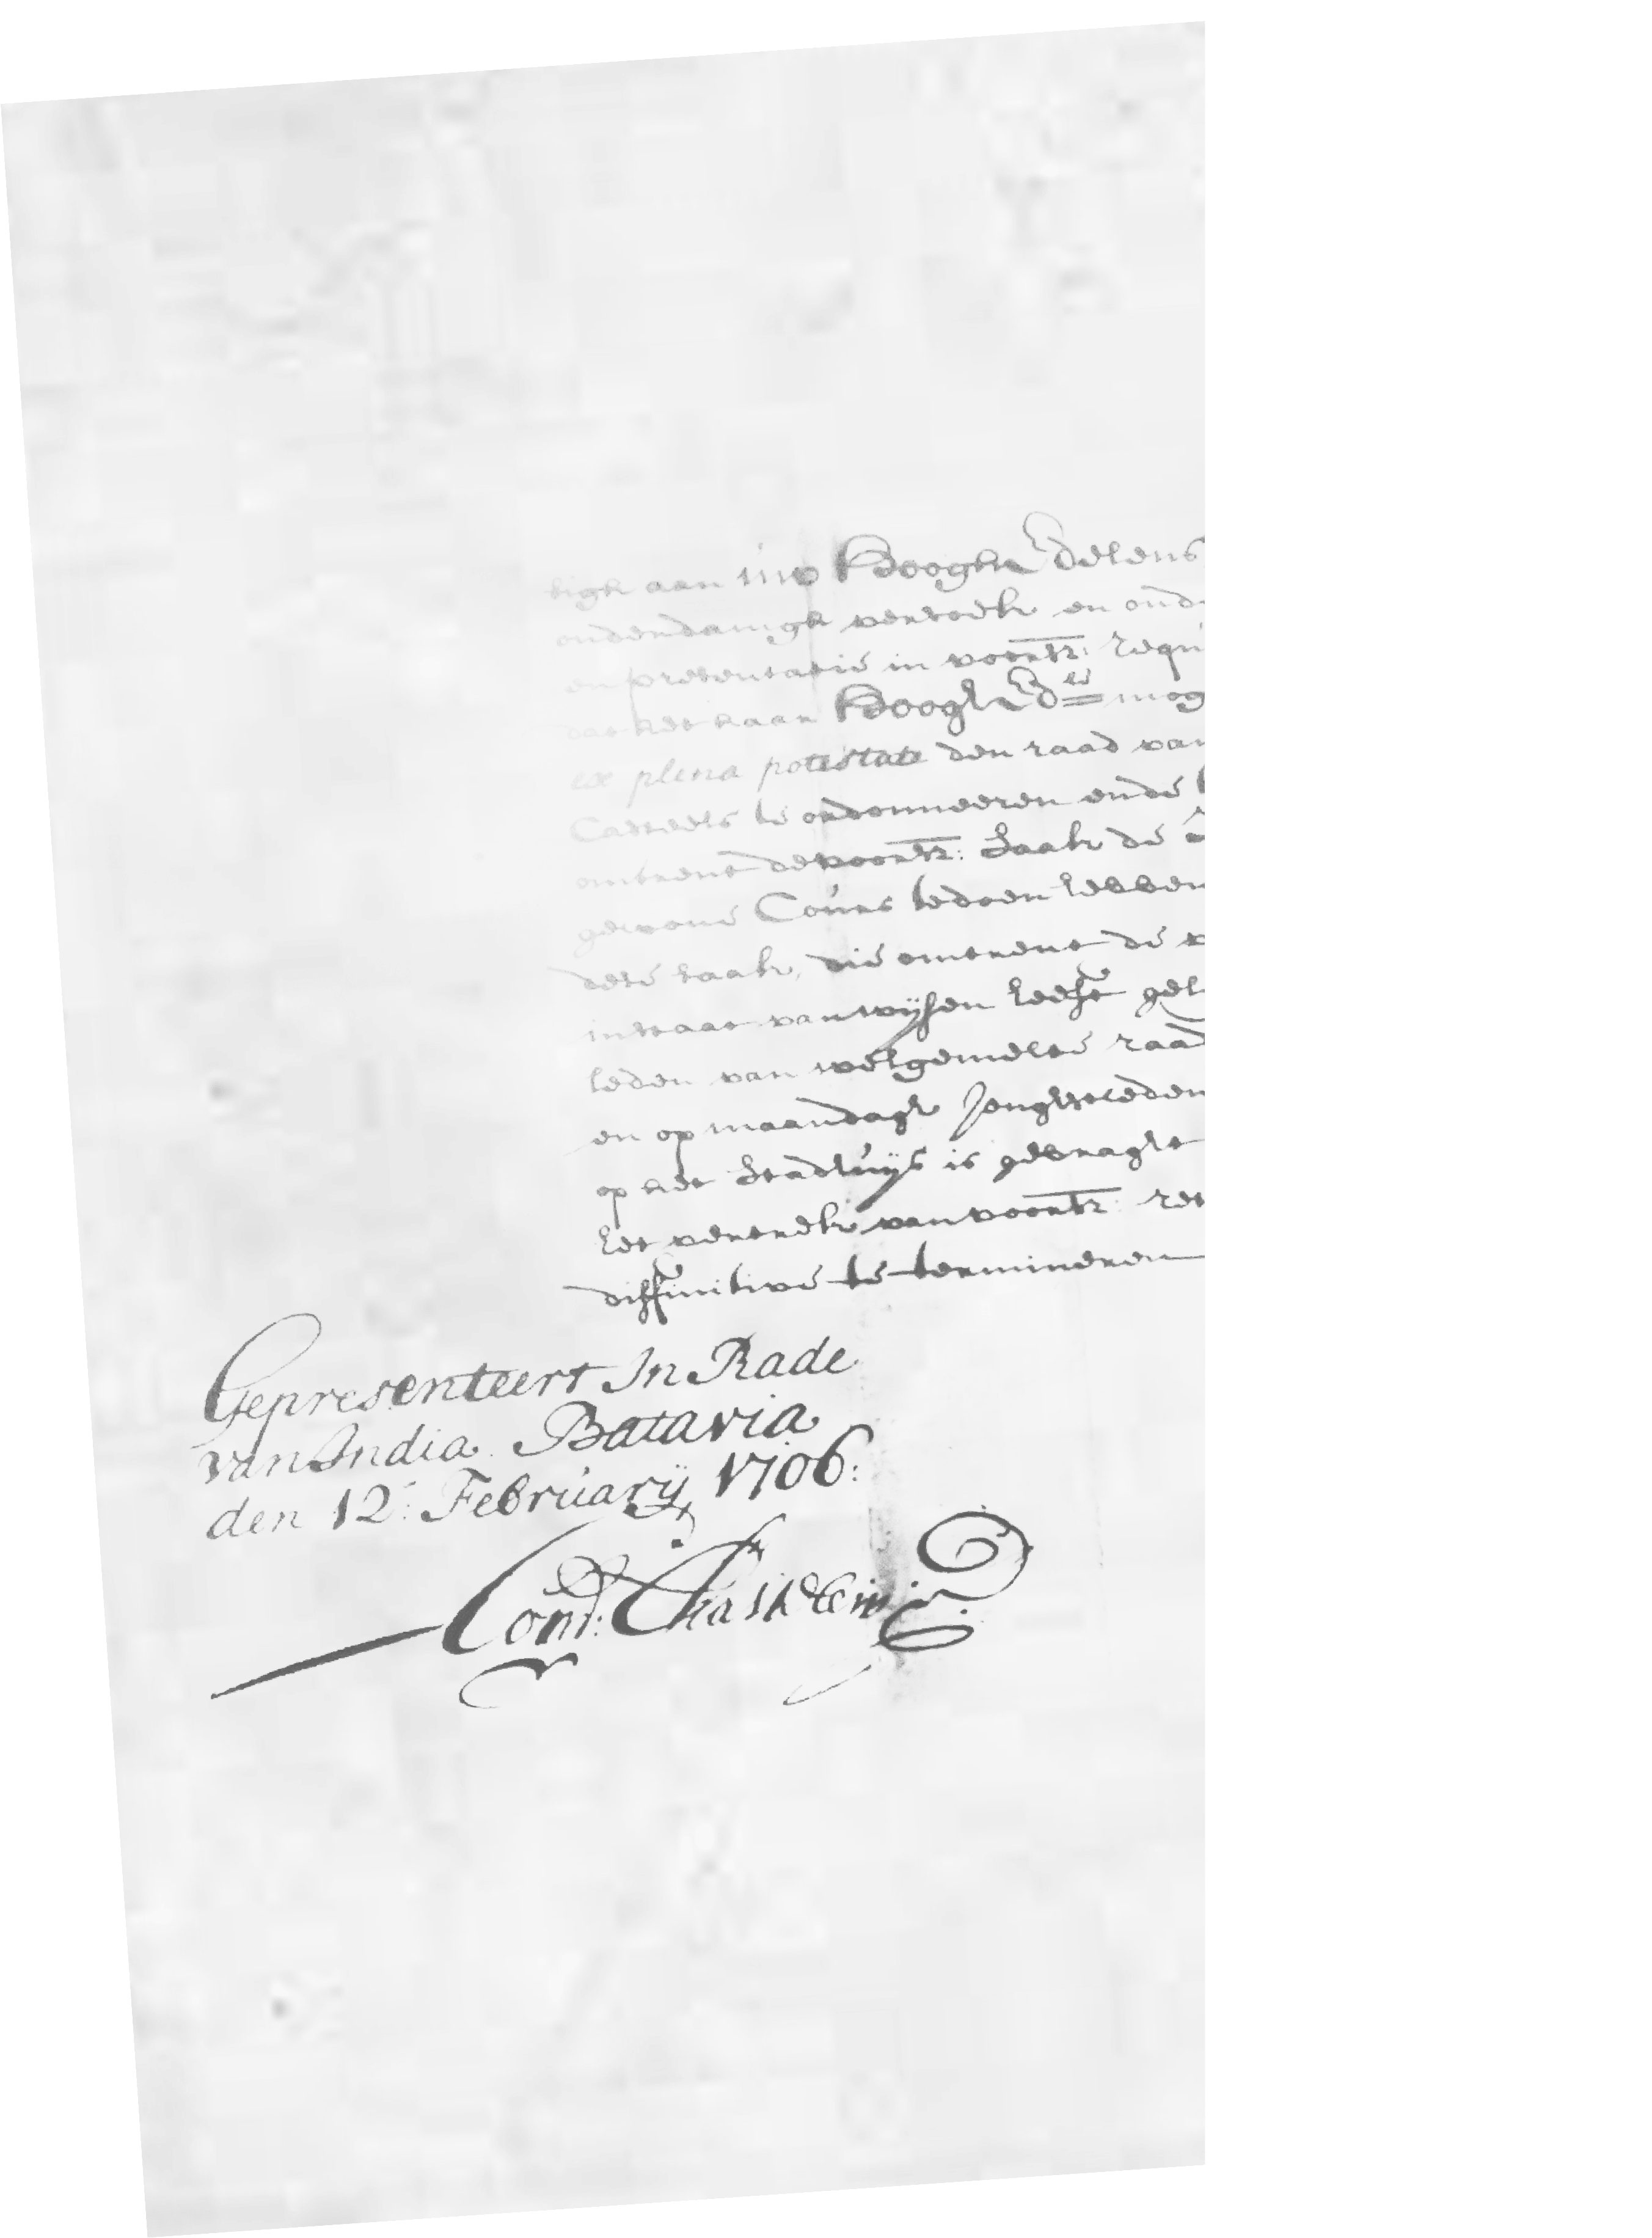 ligh aan uw Hoogh Edelens
onderdanigh versoek en ond
en presentatie in voorsz: requ
dat het haar Hoogh Ed:le mog
ex plena potestate den raad van
Casteels te ordonneeren ende
omtrent de voorsz: Saak de
gewone Cours te doen hebben
dese saak, die omtrent de
in staat van wijsen heeft gel
leden van welgemelte raad
en op maandagh Jonghstleden
op het Stadhuijs is gebraght
het vertrek van voorsz: ret
diffinitive te termineren
Gepresenteert In Rade
van India Batavia
den 12: Februarij 1706:
Cond: Chasteleijn